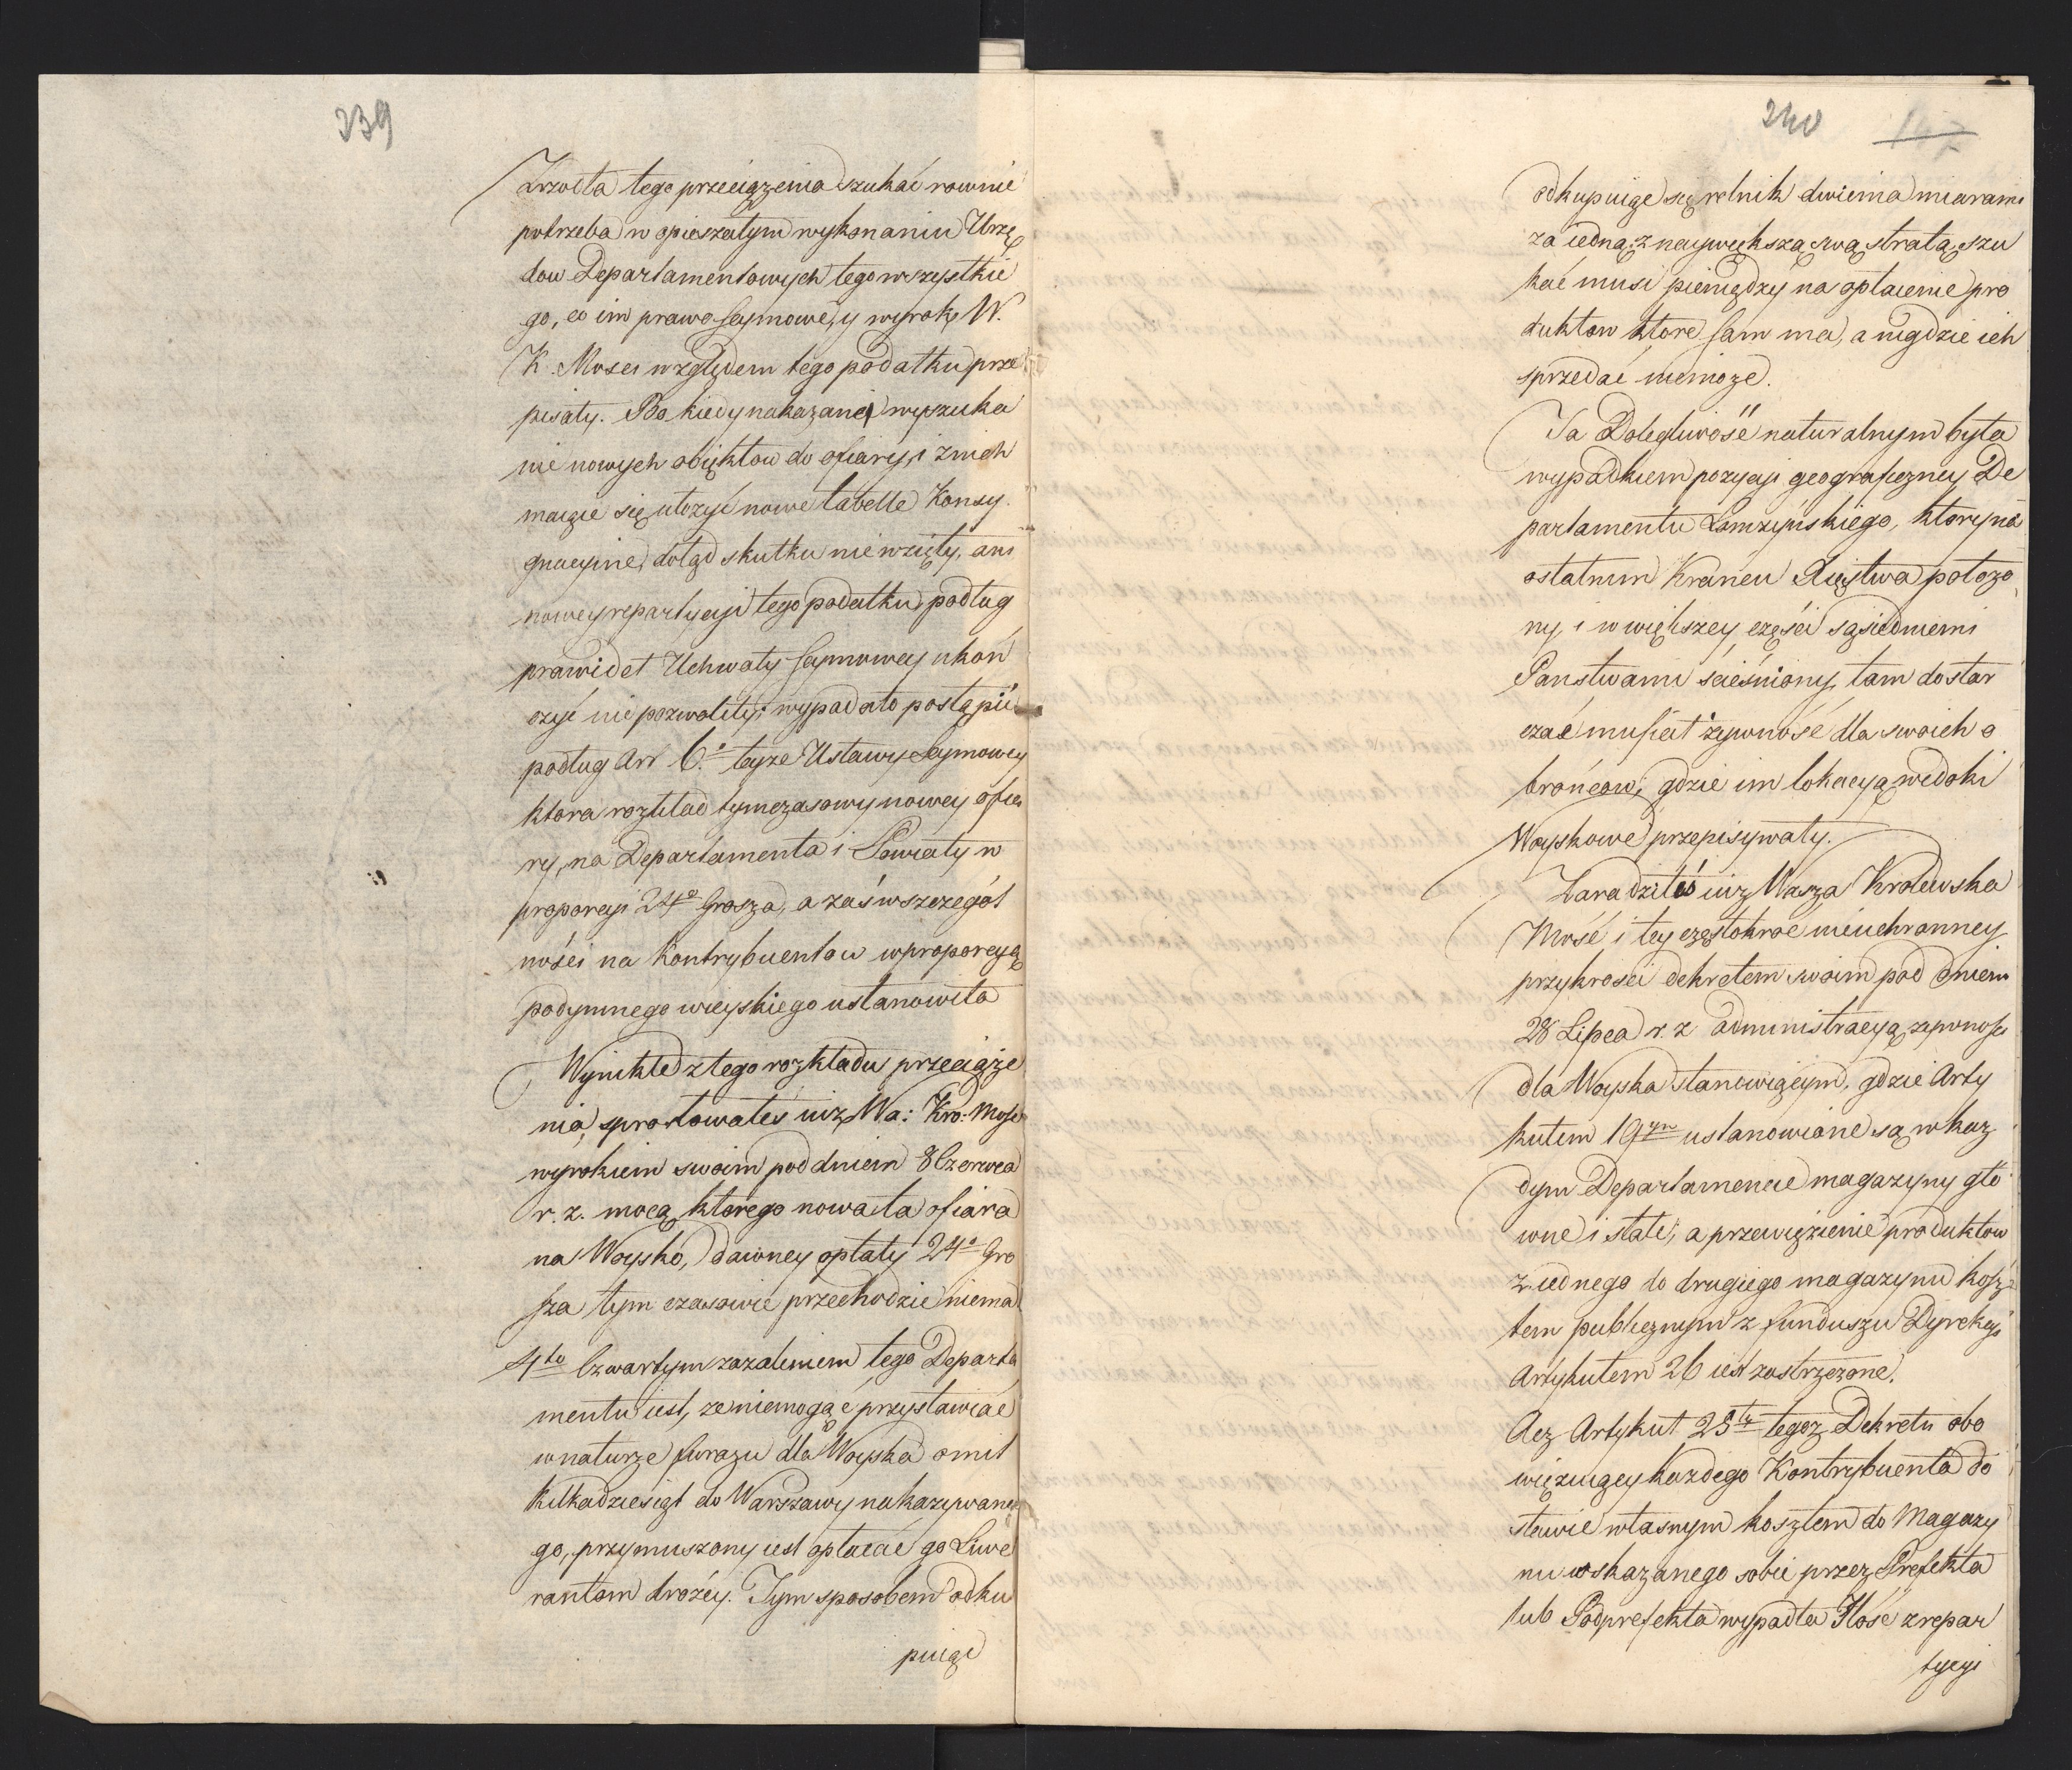 239
Zrzodła tego przeciązenia szukać rownie
potrzeba w opieszałym wykonaniu Urzę
dow Departamentowych tego wszystkie
go, co im prawo Seymowe, y wyroki W.
K. Mosci względem tego podatku prze
pisały. Bo kiedy nakazane wyszuka
nie nowych obiektow do ofiary, i z nich
maiące się ułozyć nowe tabelle Konsy
gnacyine, dotąd skutku nie wzięły, ani
nowey repartycyi tego podatku podług
prawideł Uchwały Seymowey ukoń
czyć nie pozwoliły; wypadało postąpić
podług Art 6.º teyze Ustawy Seymowey
ktora rozkład tymczasowy nowey ofia
ry, na Departamenta i Powiaty w
proporcyi 24º Grosza, a zaś w szczegól
ności na Kontrybuentow w proporcyą
podymnego wieyskiego ustanowiła
Wynikłe z tego rozkładu przeciąże
nia, sprostowałeś iuz Wa: Kro: Mość
wyrokiem swoim pod dniem 8 Czerwca
r. z. mocą ktorego nowa ta ofiara
na Woysko, dawney opłaty 24º Gro
sza tym czasowie przechodzić niema
4to Czwartym zazaleniem tego Departa
mentu iest, ze niemogąc przystawiać
w naturze furazu dla Woyska o mil
kilkadziesiąt do Warszawy nakazywane
go, przymuszony iest opłacać go Liwe
rantom drożéy. Tym sposobem odku
puiąc
240
147
odkupuiąc się rolnik dwiema miarami
za iedną, z naywiększą swą stratą, szu
kać musi pieniędzy na opłacenie pro
duktow ktore sam ma, a nigdzie ich
sprzedać niemoże.
Ta Dolegliwość naturalnym była
wypadkiem pozycyi geograficzney De
partamentu Łomzyńskiego, ktory na
ostatnim Krańcu Xięstwa położo
ny, i w większey części sąsiedniemi
Państwami ścieśniony, tam dostar
czać musiał żywność dla swoich o
brońcow, gdzie im lokacyą widoki
Woyskowe przepisywały.
Zaradziłeś iuz Wasza Krolewska
Mość i tey częstokroć nieuchronney
przykrości dekretem swoim pod dniem
28 Lipca r. z administracyą zywności
dla Woyska stanowiącym, gdzie Arty
kułem 19ym ustanowione są w kaz
dym Departamencie magazyny głó
wne i stałe, a przewiezienie produktow
z iednego do drugiego magazynu kosz
tem publicznym z funduszu Dyrekcyi
Artykułem 26 iest zastrzezone.
Acz Artykuł 25ty tegoz Dekretu obo
wiązuiący kazdego Kontrybuenta do
stawić własnym kosztem do Magazy
nu wskazanego sobie przez Prefekta
lub Podprefekta wypadła Ilość z repar
tycyi